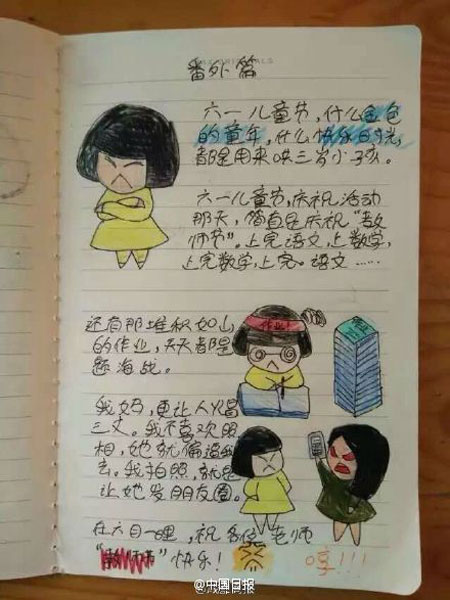 番外篇
六一儿童节,什么金色
的童年,什么快乐时光,
都是用来哄三岁小孩。
六一儿童节,庆祝活动
那天,简直是庆祝“教
师节”。上完语文,上数学,
上完数学,上完。语文……
还有那堆积如山
的作业,天天都是
题海战。
作业!
我妈,更让人火冒
三丈。我不喜欢照
相,她就偏逼我
去。我拍照,就是
让她发朋友圈。
在六月一哩,祝各位老师
“教师节”快乐!
哼!!!
@中国日报